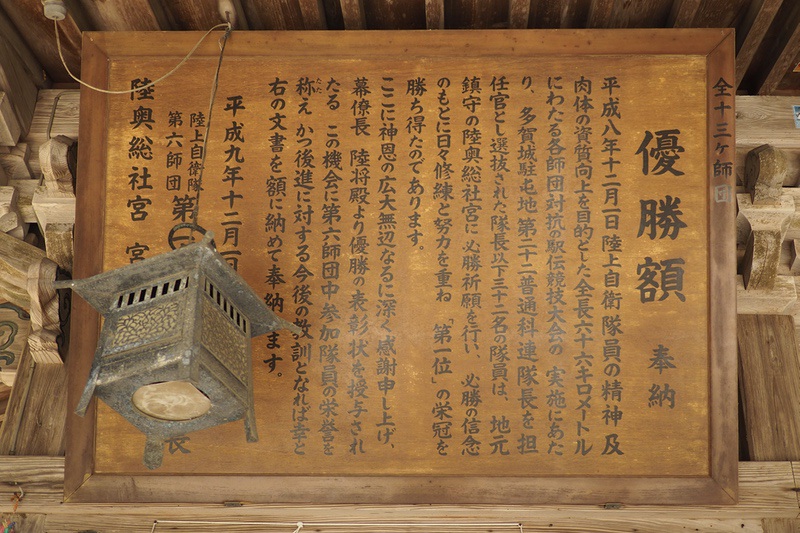 全十三ヶ師団
優勝額 奉納
平成八年十二月一日 陸上自衛隊員の精神及
肉体の資質向上を目的とした全長六十六キロメートル
にわたる各師団対抗の駅伝競技大会の 実施にあた
り、多賀城駐屯地 第二十二普通科連隊長を担
任官とし選抜された隊長以下三十二名の隊員は、地元
鎮守の陸奥総社宮に必勝祈願を行い、必勝の信念
のもとに日々修練と努力を重ね 「第一位」の栄冠を
勝ち得たのであります。
ここに神恩の広大無辺なるに深く感謝申し上げ、
幕僚長 陸将殿より優勝の表彰状を授与され
たる この機会に第六師団中参加隊員の栄誉を
称え かつ後進に対する今後の教訓となれば幸と
右の文書を額に納めて奉納 ます。
平成九年十二月
陸上自衛隊
第六師団 第 長
陸奥総社宮 宮